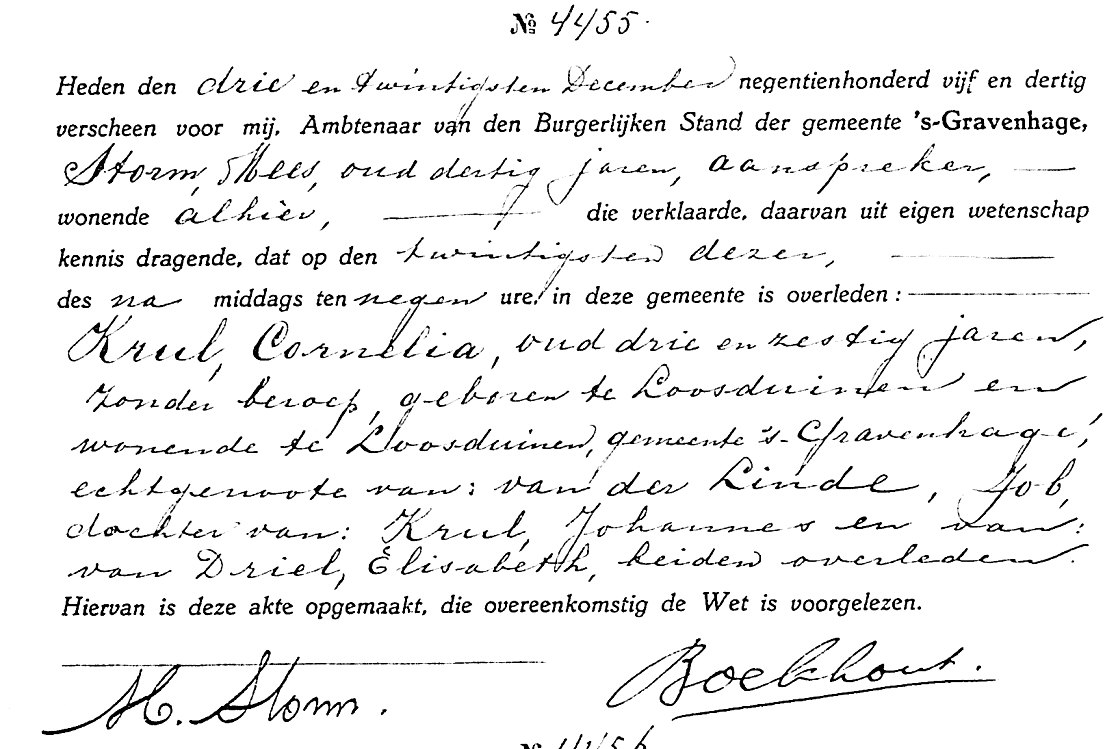 № 4455.
Heden den drie en twintigsten December negentienhonderd vijf en dertig
verscheen voor mij, Ambtenaar van den Burgerlijken Stand der gemeente 's-Gravenhage,
Storm, Mees, oud dertig jaren, aanspreker, —
wonende alhier, — die verklaarde, daarvan uit eigen wetenschap
kennis dragende, dat op den twintigsten dezer, —
des na middags ten negen ure, in deze gemeente is overleden : —
Krul, Cornelia, oud drie en zestig jaren,
zonder beroep, geboren te Loosduinen en
wonende te Loosduinen, gemeente 's-Gravenhage,
echtgenoote van: van der Linde, Job,
dochter van: Krul, Johannes en van:
van Driel, Elisabeth, beiden overleden.
Hiervan is deze akte opgemaakt, die overeenkomstig de Wet is voorgelezen.
M. Storm. Boekhout.
№ 4456